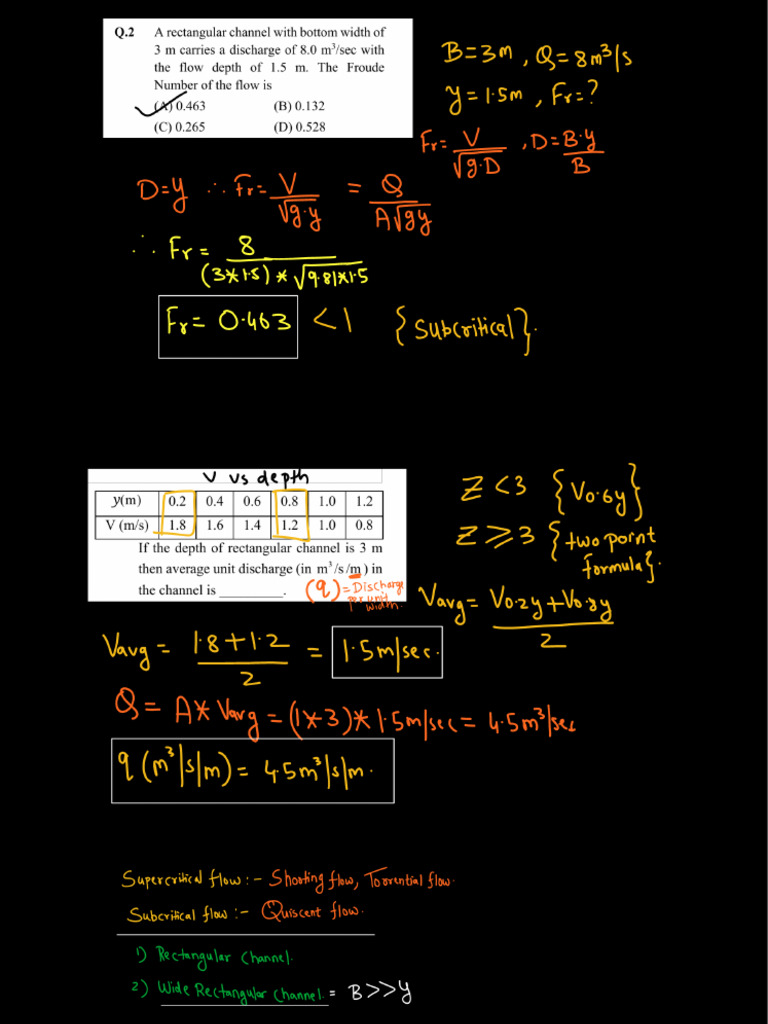 Q.2 A rectangular channel with bottom width of
3 m carries a discharge of 8.0 m³/sec with
the flow depth of 1.5 m. The Froude
Number of the flow is
(A) 0.463 (B) 0.132
(C) 0.265 (D) 0.528
B=3m, Q=8m³/s
y=1.5m, Fr=?
Fr= V/√g.D , D= B.y/B
D=y ∴ Fr= V/√g.y = Q/A√gy
∴ Fr= 8/(3*1.5)*√9.81*1.5
Fr= 0.463 < 1 {Subcritical}.
V vs depth
y(m) 0.2 0.4 0.6 0.8 1.0 1.2
V (m/s) 1.8 1.6 1.4 1.2 1.0 0.8
If the depth of rectangular channel is 3 m
then average unit discharge (in m³/s/m) in
the channel is __________.
(q) = Discharge
per unit
width.
Z < 3 {V0.6y}
Z ⩾ 3 {two point
formula}.
Vavg= V0.2y+V0.8y/2
Vavg = 1.8+1.2/2 = 1.5m/sec.
Q= A*Vavg = (1*3)*1.5m/sec = 4.5m³/sec
q (m³/s/m) = 4.5m³/s/m.
Supercritical flow:- Shooting flow, Torrential flow.
Subcritical flow:- Quiscent flow.
1) Rectangular Channel.
2) Wide Rectangular Channel. = B>>y